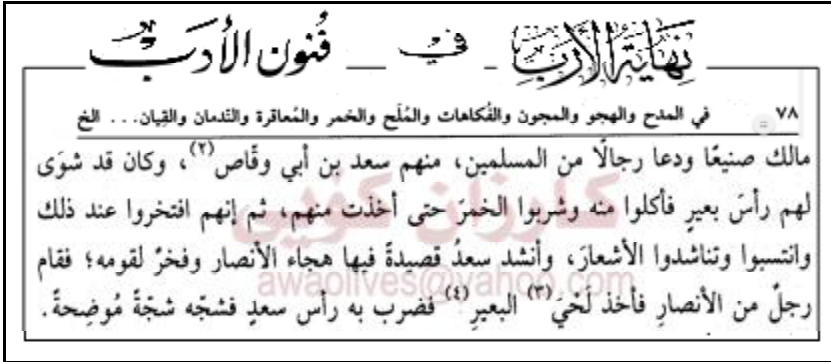 نهاية الأرب في فنون الأدب
٧٨ في المدح والهجو والمجون والفُكاهات والمُلَح والخمر والمُعاقرة والنّدمان والقِيان... الخ
مالك صنيعًا ودعا رجالًا من المسلمين، منهم سعد بن أبي وقّاص(٢)، وكان قد شوَى
لهم رأسَ بعيرٍ فأكلوا منه وشربوا الخمرَ حتى أخذت منهم، ثم إنهم افتخروا عند ذلك
وانتسبوا وتناشدوا الأشعارَ، وأنشد سعدُ قصيدةً فيها هجاء الأنصار وفخرٌ لقومه؛ فقام
رجلٌ من الأنصارِ فأخذ لَحْيَ(٣) البعيرِ(٤) فضرب به رأس سعدٍ فشجّه شجّةً مُوضِحةً.
كارزان كؤيى
awaolives@yahoo.com